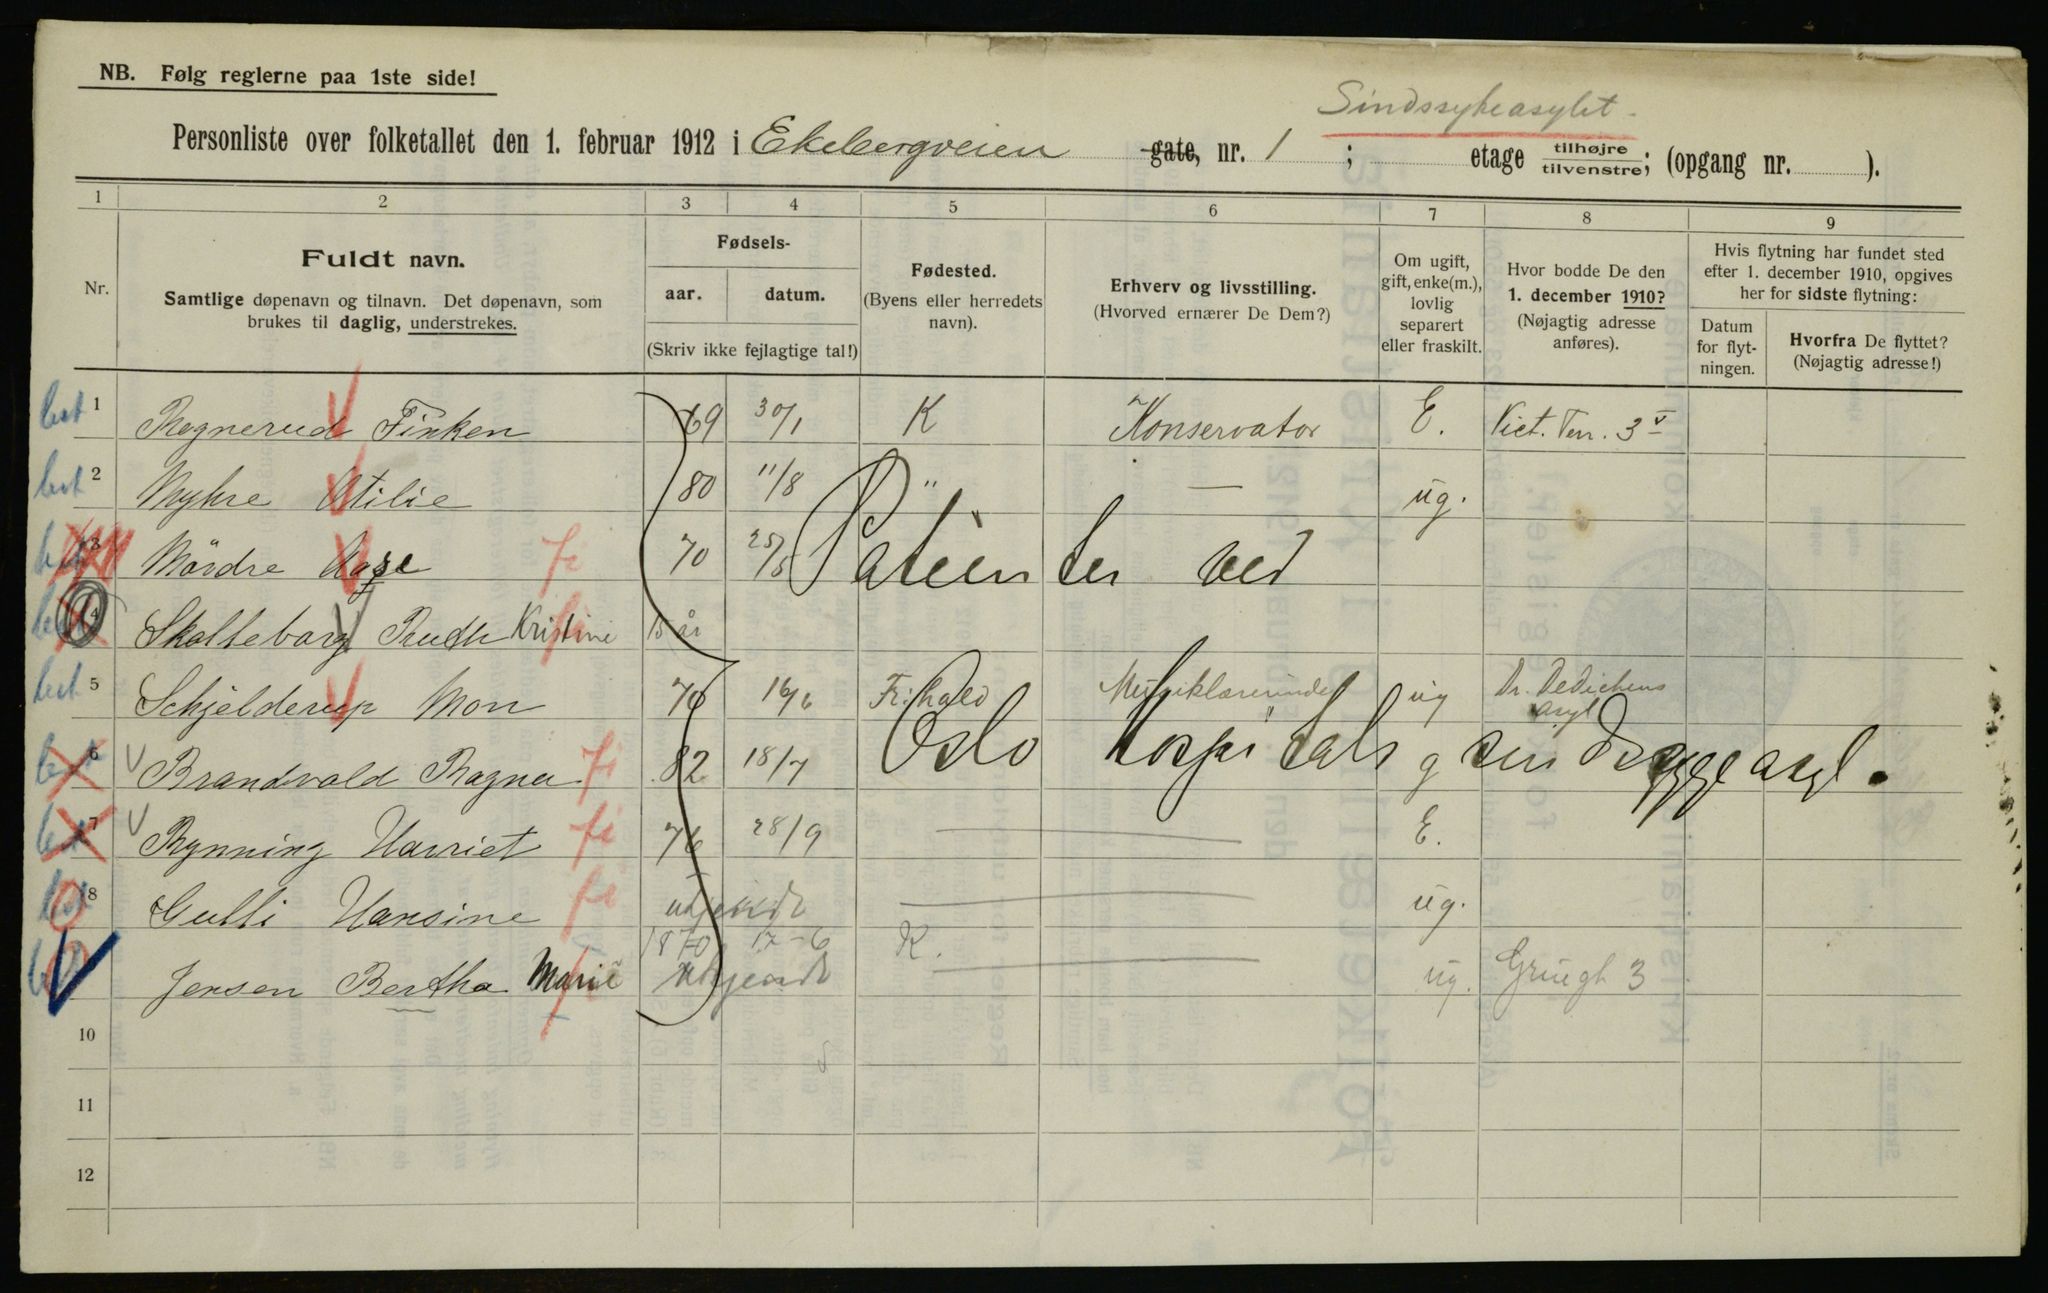 NB. Følg reglerne paa 1ste side!
Sindssykeasylet.
Personliste over folketallet den 1. februar 1912 i Ekebergveien gate, nr. 1 ; etage tilhøjre/tilvenstre; (opgang nr. ).
1 2 3 4 5 6 7 8 9
Nr.
Fuldt navn.
Samtlige døpenavn og tilnavn. Det døpenavn, som
brukes til daglig, understrekes.
Fødsels-
aar. datum.
(Skriv ikke fejlagtige tal!)
Fødested.
(Byens eller herredets
navn).
Erhverv og livsstilling.
(Hvorved ernærer De Dem?)
Om ugift,
gift, enke(m.),
lovlig
separert
eller fraskilt.
Hvor bodde De den
1. december 1910?
(Nøjagtig adresse
anføres).
Hvis flytning har fundet sted
efter 1. december 1910, opgives
her for sidste flytning:
Datum
for flyt-
ningen.
Hvorfra De flyttet?
(Nøjagtig adresse!)
1 Ragnerud Finken 69 30/1 K Konservator E. Vict. Terr. 3 v
2 Myhre Otilie 80 11/8 " — ug.
3 Mördre Aase fi 70
Patienter ved
4 Skotteborg Ruth Kristine 15 år
5 Schjelderup Mon 70 16/6 Fr:hald Musiklærerinde ug Dr. Dedichens
asyl
Oslo Hospitals sindssygeasyl.
6 Brandvold Ragna fi 82 18/7 g
7 Rynning Harriet fi 76 28/9 E.
8 Gulli Hansine fi ukjendt ug.
1870 17-6 K.
Jensen Bertha Marie ukjendt ug. Grügt 3
10
11
12